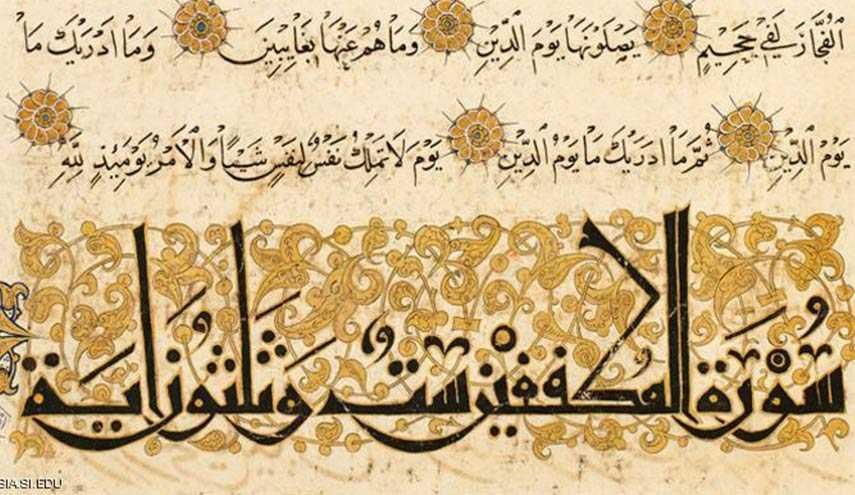 الفُجَّارَ لَفِي جَحِيمٍ يَصْلَوْنَهَا يَوْمَ الدِّينِ وَمَا هُمْ عَنْهَا بِغَايِبِينَ وَمَا أَدْرَيكَ مَا
يَوْمُ الدِّينِ ثُمَّ مَا أَدْرَيكَ مَا يَوْمُ الدِّينِ يَوْمَ لَا تَمْلِكُ نَفْسٌ لِنَفْسٍ شَيْـًٔا وَالْأَمْرُ يَوْمَئِذٍ لِلَّهِ
سُوْرَة المطففيْن ست وَثلثوْن اية
SIA.SI.EDU